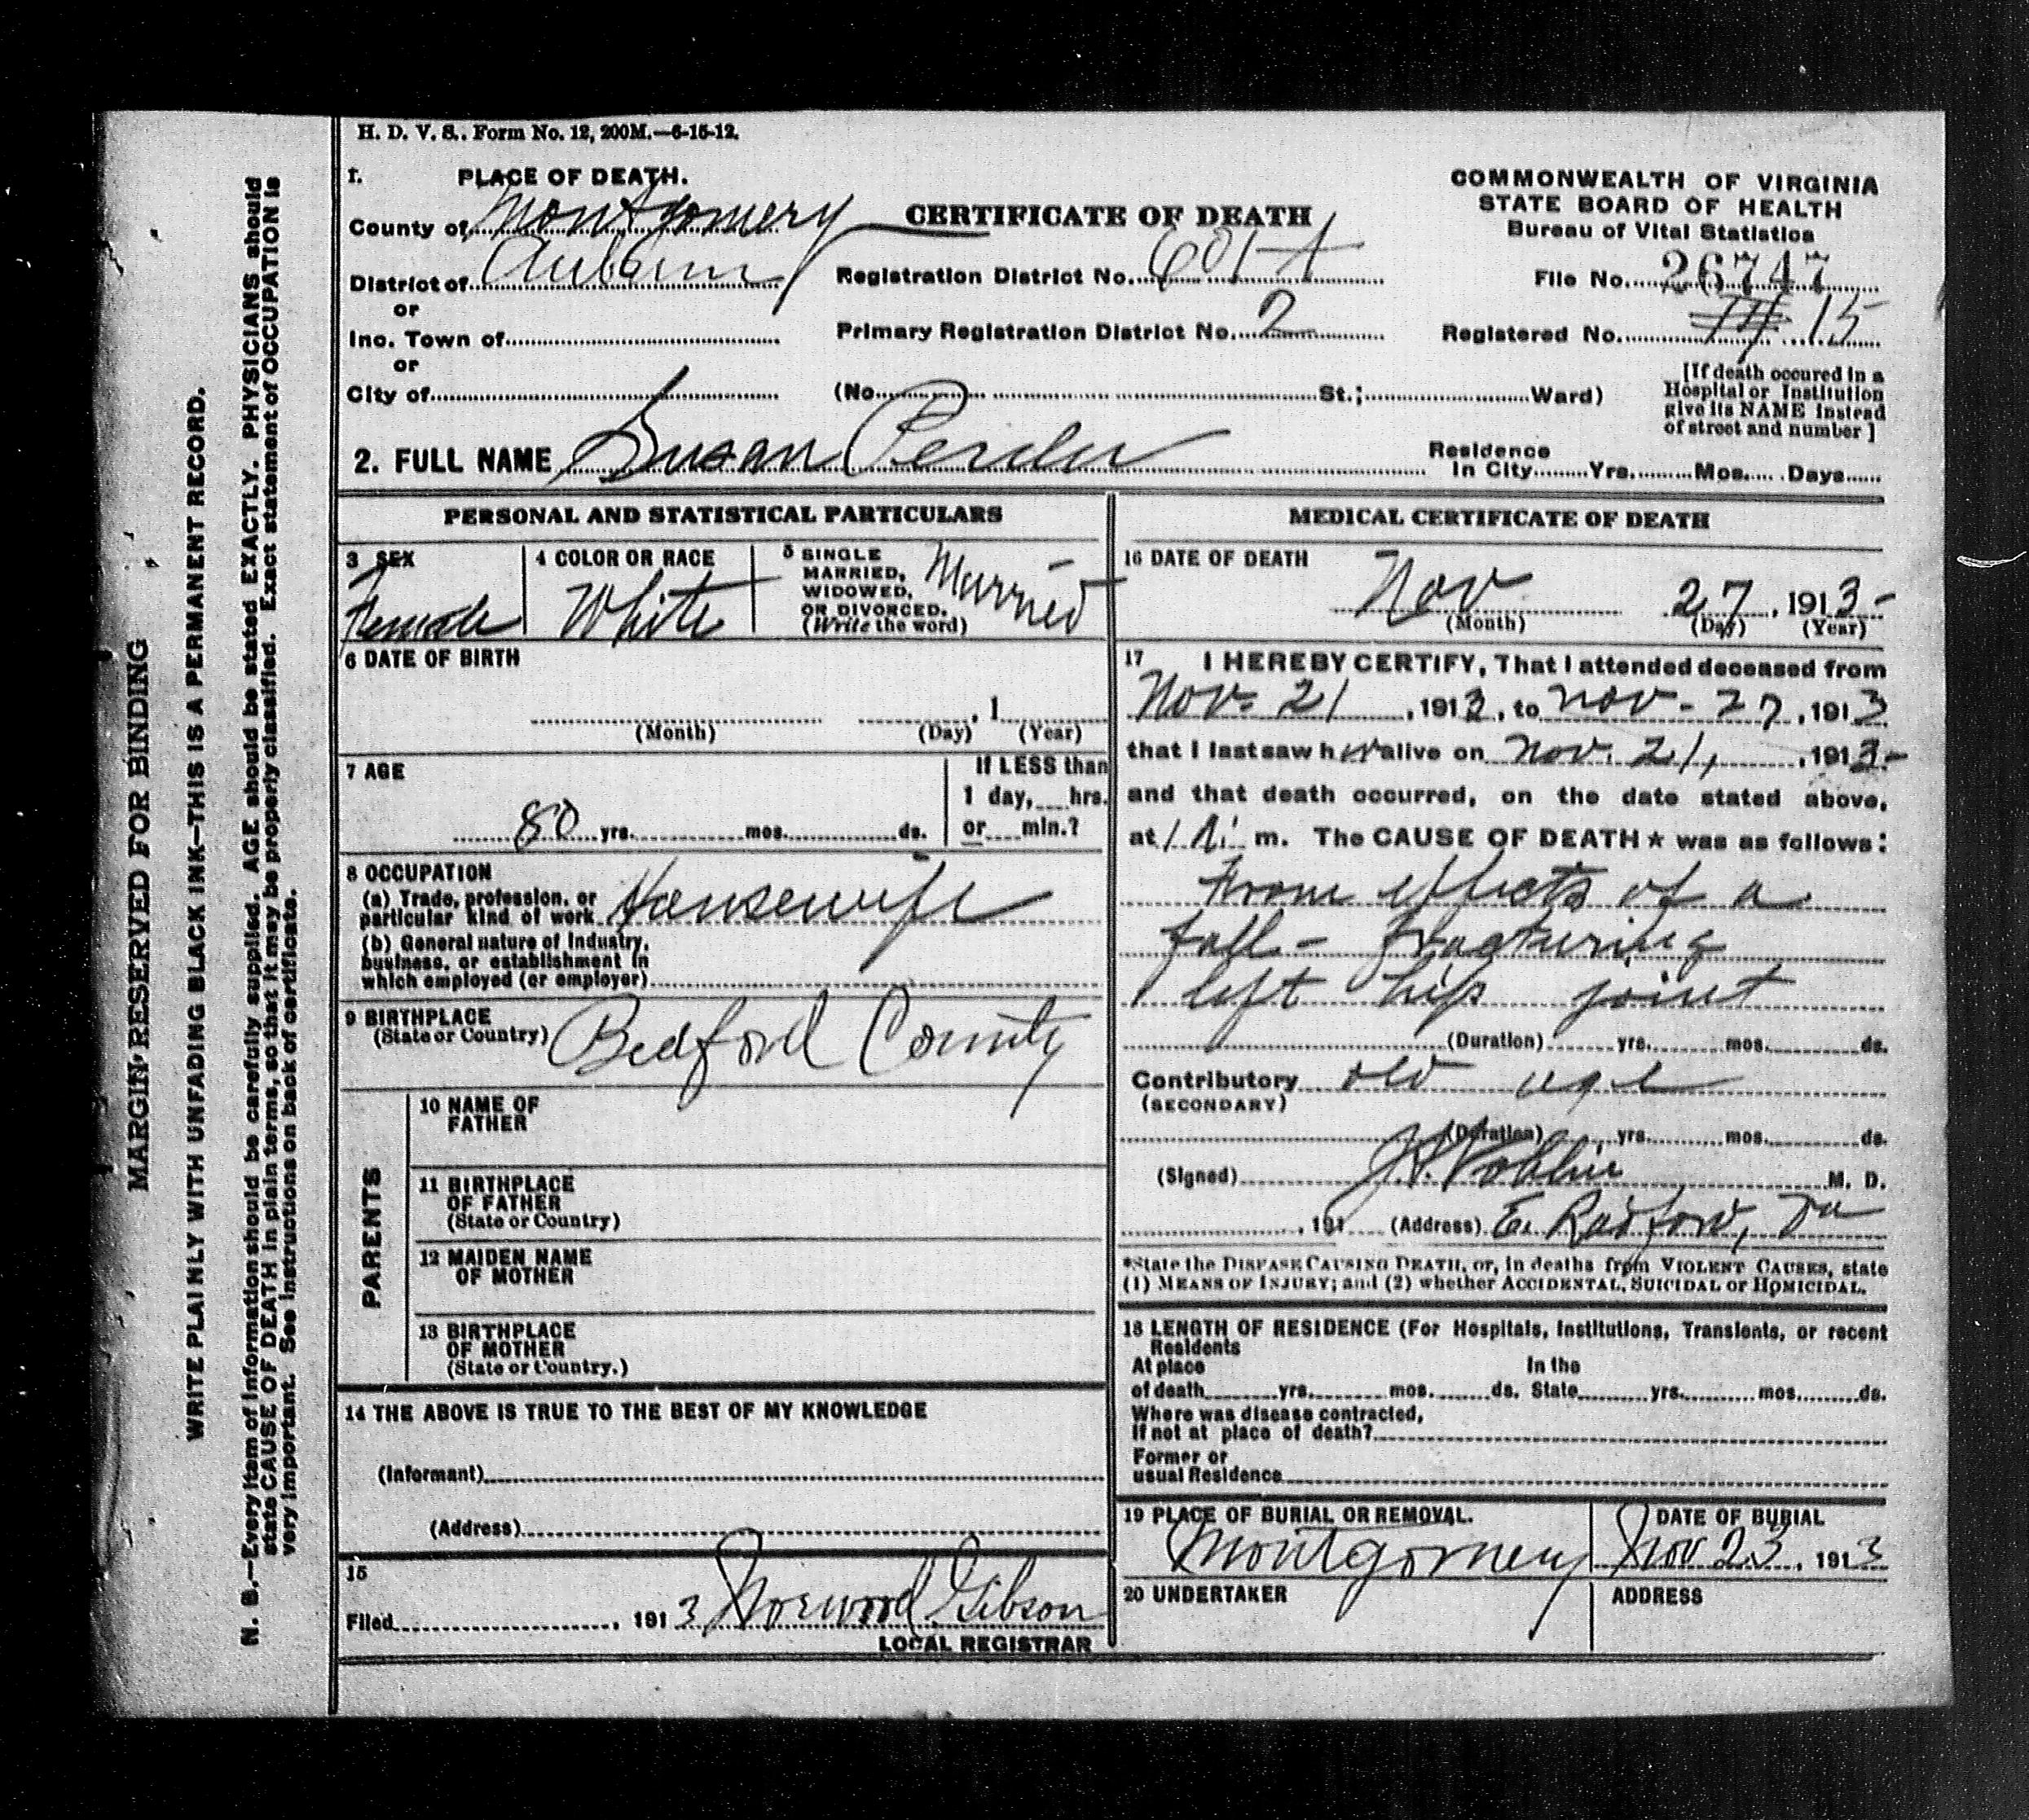 H. D. V. S., Form No. 12, 200M.—6-15-12.
1. PLACE OF DEATH.
County of Montgomery
District of Auburn
or
Inc. Town of
or
City of
CERTIFICATE OF DEATH
Registration District No. 601-A
Primary Registration District No. 2
(No. St.; Ward)
COMMONWEALTH OF VIRGINIA
STATE BOARD OF HEALTH
Bureau of Vital Statistics
File No. 26747
Registered No. 15
[If death occured in a
Hospital or Institution
give its NAME instead
of street and number]
2. FULL NAME Susan
Residence
In City Yrs. Mos. Days
PERSONAL AND STATISTICAL PARTICULARS
3 SEX
Female
4 COLOR OR RACE
White
5 SINGLE
MARRIED,
WIDOWED,
OR DIVORCED.
(Write the word)
Married
6 DATE OF BIRTH
, 1
(Month) (Day) (Year)
7 AGE
80 yrs. mos. ds.
If LESS than
1 day, hrs.
or min.?
8 OCCUPATION
(a) Trade, profession, or
particular kind of work Housewife
(b) General nature of Industry,
business, or establishment in
which employed (or employer)
9 BIRTHPLACE
(State or Country) Bedford County
PARENTS
10 NAME OF
FATHER
11 BIRTHPLACE
OF FATHER
(State or Country)
12 MAIDEN NAME
OF MOTHER
13 BIRTHPLACE
OF MOTHER
(State or Country.)
14 THE ABOVE IS TRUE TO THE BEST OF MY KNOWLEDGE
(Informant)
(Address)
15
Filed , 1913 Norwood Gibson
LOCAL REGISTRAR
MEDICAL CERTIFICATE OF DEATH
16 DATE OF DEATH
Nov 27, 1913-
(Month) (Day) (Year)
17 I HEREBY CERTIFY, That I attended deceased from
Nov- 21, 1913, to Nov- 27, 1913
that I last saw her alive on Nov. 21, , 1913-
and that death occurred, on the date stated above,
at m. The CAUSE OF DEATH * was as follows:
From effects of a
fall - fracturing
left hip joint
(Duration) yrs. mos. ds.
Contributory old age
(SECONDARY)
(Duration) yrs. mos. ds.
(Signed) M. D.
, 191 (Address) E. Radford, Va
*State the DISEASE CAUSING DEATH, or, in deaths from VIOLENT CAUSES, state
(1) MEANS OF INJURY; and (2) whether ACCIDENTAL, SUICIDAL or HOMICIDAL.
18 LENGTH OF RESIDENCE (For Hospitals, Institutions, Transients, or recent
Residents
At place In the
of death yrs. mos. ds. State yrs. mos. ds.
Where was disease contracted,
If not at place of death?
Former or
usual Residence
19 PLACE OF BURIAL OR REMOVAL.
Montgomery
DATE OF BURIAL
Nov 23, 1913
20 UNDERTAKER
ADDRESS
MARGIN RESERVED FOR BINDING
WRITE PLAINLY WITH UNFADING BLACK INK—THIS IS A PERMANENT RECORD.
N. B.—Every item of information should be carefully supplied. AGE should be stated EXACTLY. PHYSICIANS should
state CAUSE OF DEATH in plain terms, so that it may be properly classified. Exact statement of OCCUPATION is
very important. See instructions on back of certificate.